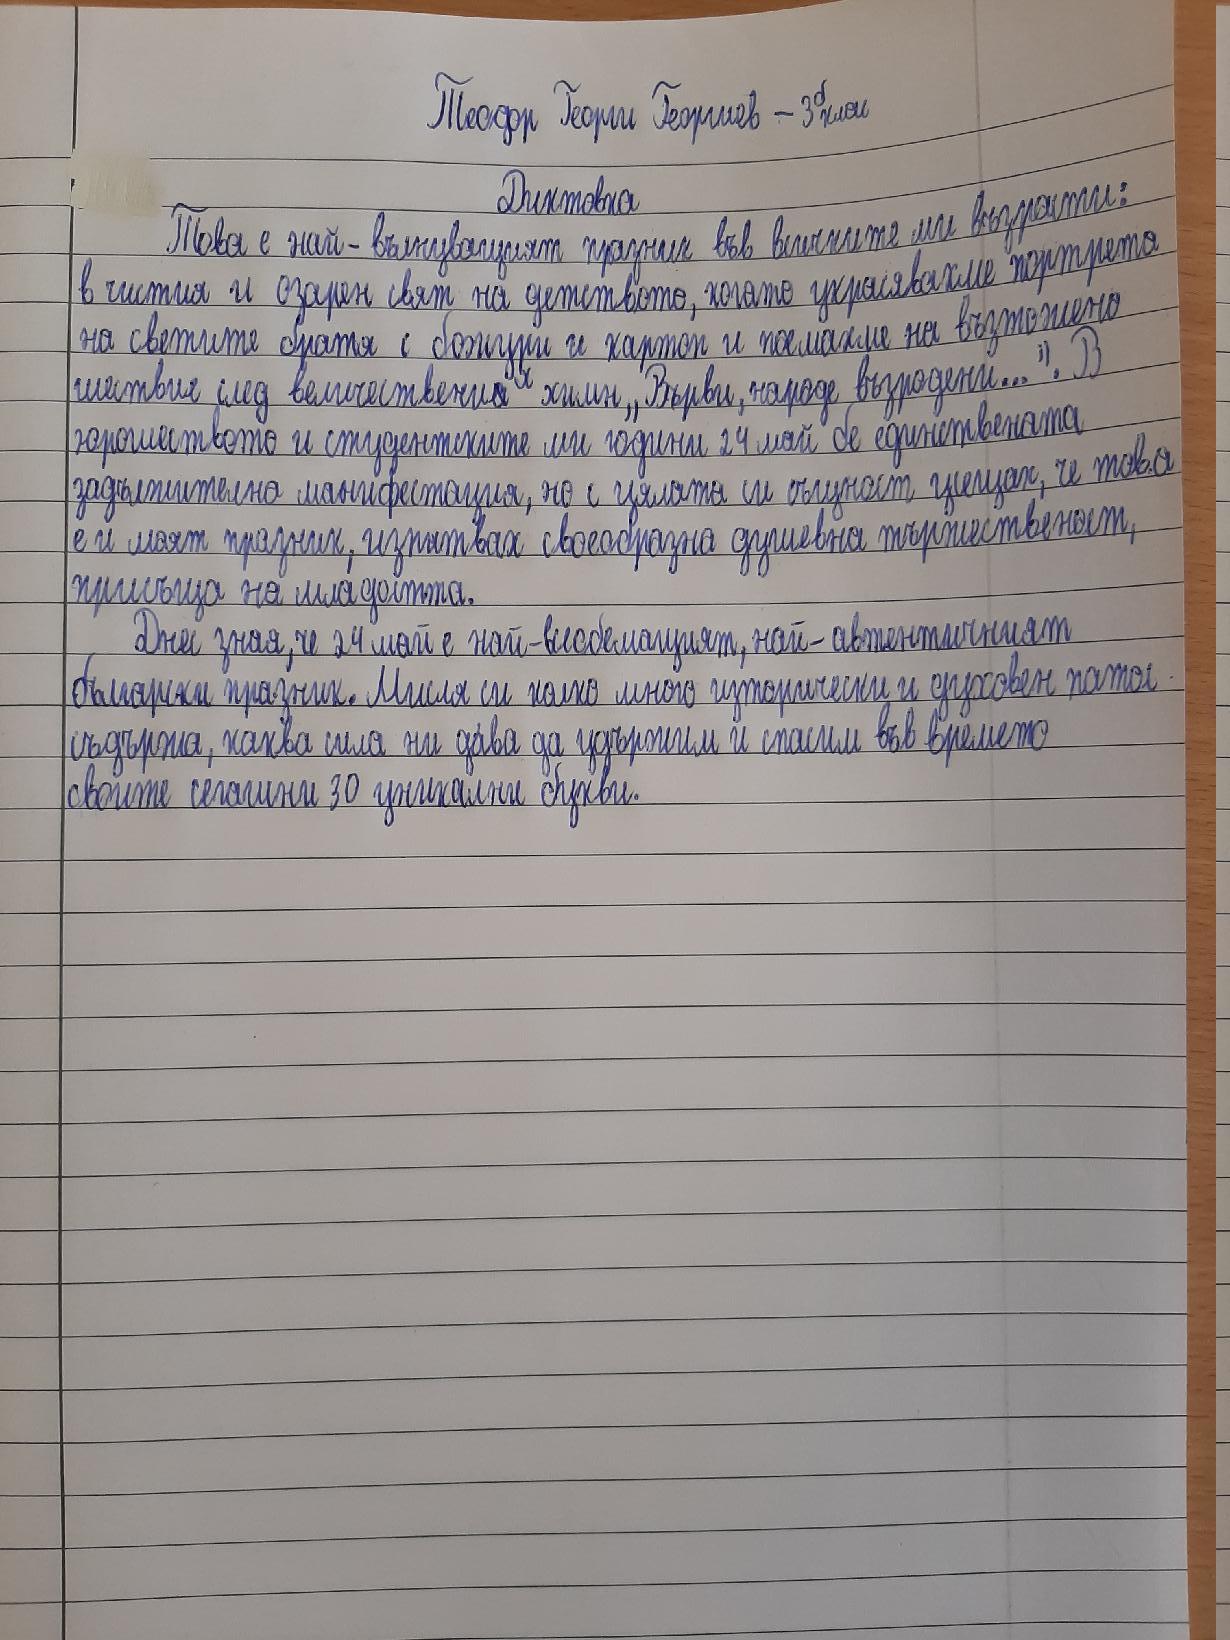 Теодор Георги Георгиев – 3б клас
Диктовка
Това е най-вълнуващият празник във всичките ми възрасти:
в чистия и озарен свят на детството, когато украсявахме портрета
на светите братя с божури и картон и поемахме на възтожено
шествие след величествения химн „Върви, народе възродени...". В
юрошеството и студентските ми години 24 май бе единствената
задължителна манифестация, но с цялата си същност усещах, че това
е и моят празник, изпитвах своеобразна душевна тържественост,
присъща на младостта.
Днес зная, че 24 май е най-всеобемащият, най-автентичният
български празник. Мисля си колко много изторически и духовен патос
съдържа, каква сила ни дава да удържим и спасим във времето
своите сегашни 30 уникални букви.